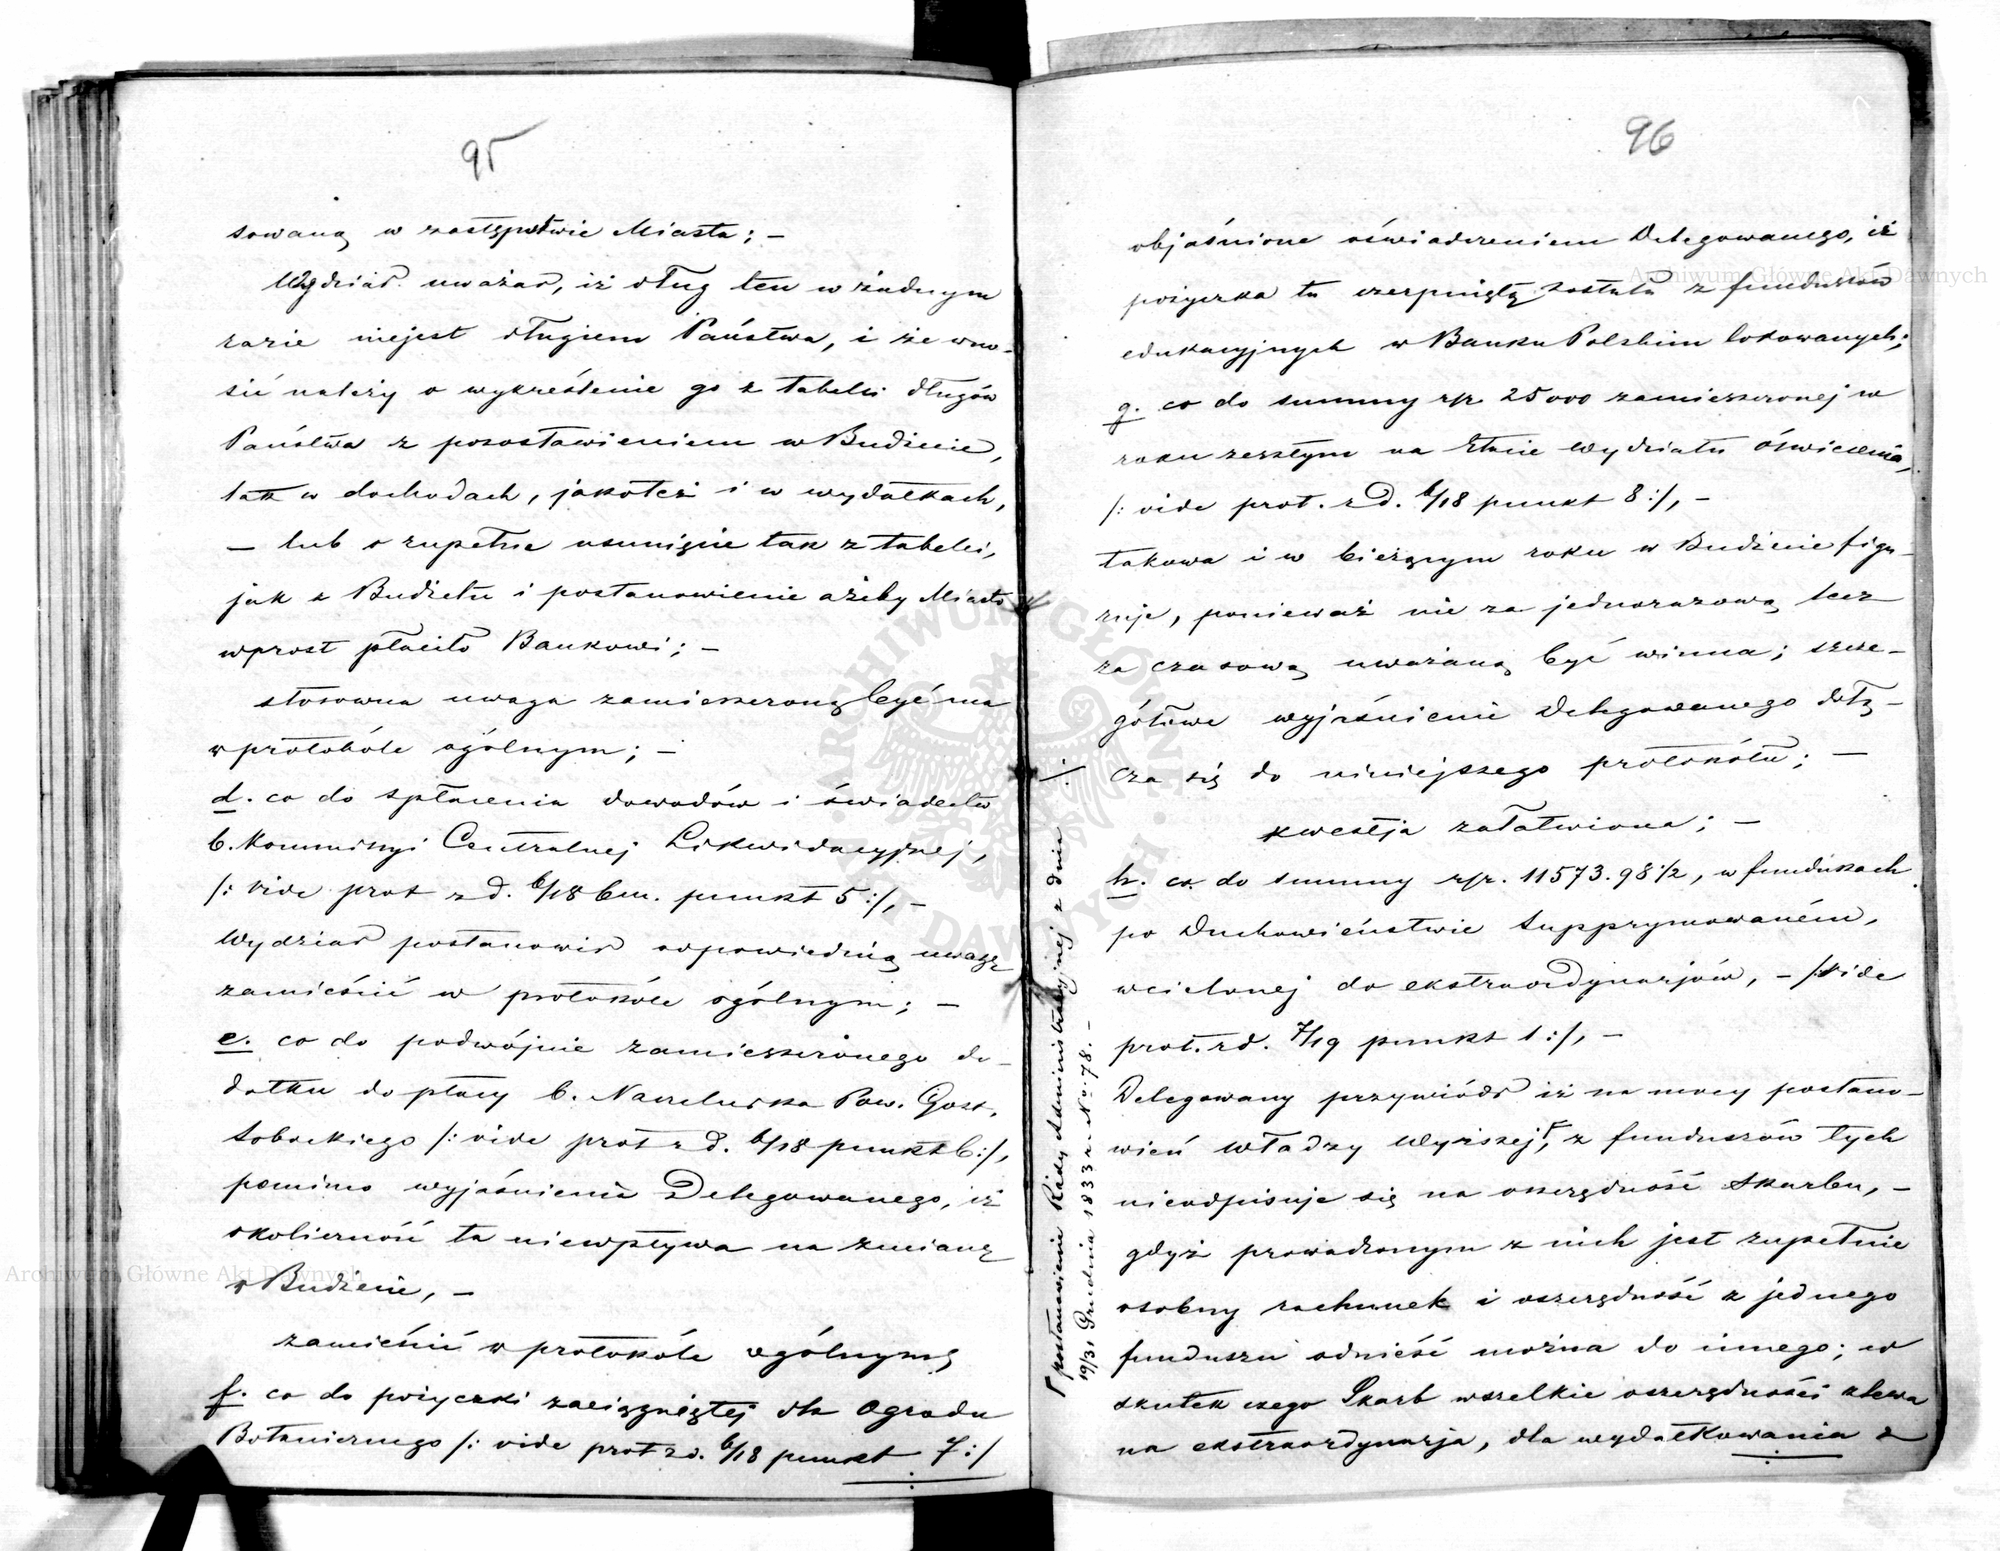 95
sowaną w zastępstwie Miasta; –
Wydział uważał, iż dług ten w żadnym
razie niejest długiem Państwa, i że wno-
sić należy o wykreślenie go z tabelli długów
Państwa z pozostawieniem w Budżecie,
tak w dochodach, jakoteż i w wydatkach,
– lub o zupełne usunięcie tak z tabelli,
jak z Budżetu i postanowienie ażeby Miasto
wprost płaciło Bankowi; –
stosowna uwaga zamieszczoną być ma
w protokóle ogólnym; –
d. co do spłacenia dowodów i świadectw
b. Kommissyi Centralnej Likwidacyjnej,
/: vide prot z d. 6/18 bm. punkt 5 :/, –
Wydział postanowił odpowiednią uwagę
zamieścić w protokóle ogólnym; –
e. co do podwójnie zamieszczonego do-
datku do płacy b. Naczelnika Pow. Gost.
Sobockiego /: vide prot z d. 6/18 punkt 6 :/,
pomimo wyjaśnienia Delegowanego, iż
okoliczność ta niewpływa na zmianę
w Budżecie, –
zamieścić w protokóle ogólnym;
f. co do pożyczki zaciągniętej dla Ogrodu
Botanicznego /: vide prot z d. 6/18 punkt 7 :/
96
objaśnione oświadczeniem Delegowanego, iż
pożyczka ta czerpniętą została z funduszów
edukacyjnych w Banku Polskim lokowanych;
g. co do summy rsr 25000 zamieszczonej w
roku zeszłym na Etacie Wydziału Oświecenia,
/: vide prot. z d. 6/18 punkt 8 :/, –
takowa i w bieżącym roku w Budżecie figu-
ruje, ponieważ nie za jednorazową lecz
za czasową uważaną być winna; szcze-
gółowe wyjaśnienie Delegowanego dołą-
cza się do niniejszego protokółu; –
kwestja załatwiona; –
h. co do summy rsr. 11573.98 1/2, w funduszach
po Duchowieństwie Supprymowaném,
wcielonej do ekstraordynarjów, – /: vide
prot. z d. 7/19 punkt 1 :/, –
Delegowany przywiódł iż na mocy postano-
wień Władzy Wyższej, z funduszów tych
nieodpisuje się na oszczędność Skarbu, –
gdyż prowadzonym z nich jest zupełnie
osobny rachunek i oszczędność z jednego
funduszu odnieść można do innego; w
skutek czego Skarb wszelkie oszczędności zlewa
na ekstraordynarja, dla wydatkowania z
postanowienie Rady Administracyjnej z dnia
19/31 Grudnia 1833 r. No 78. –
Archiwum Główne Akt Dawnych
Archiwum Główne Akt Dawnych
ARCHIWUM GŁÓWNE AKT DAWNYCH